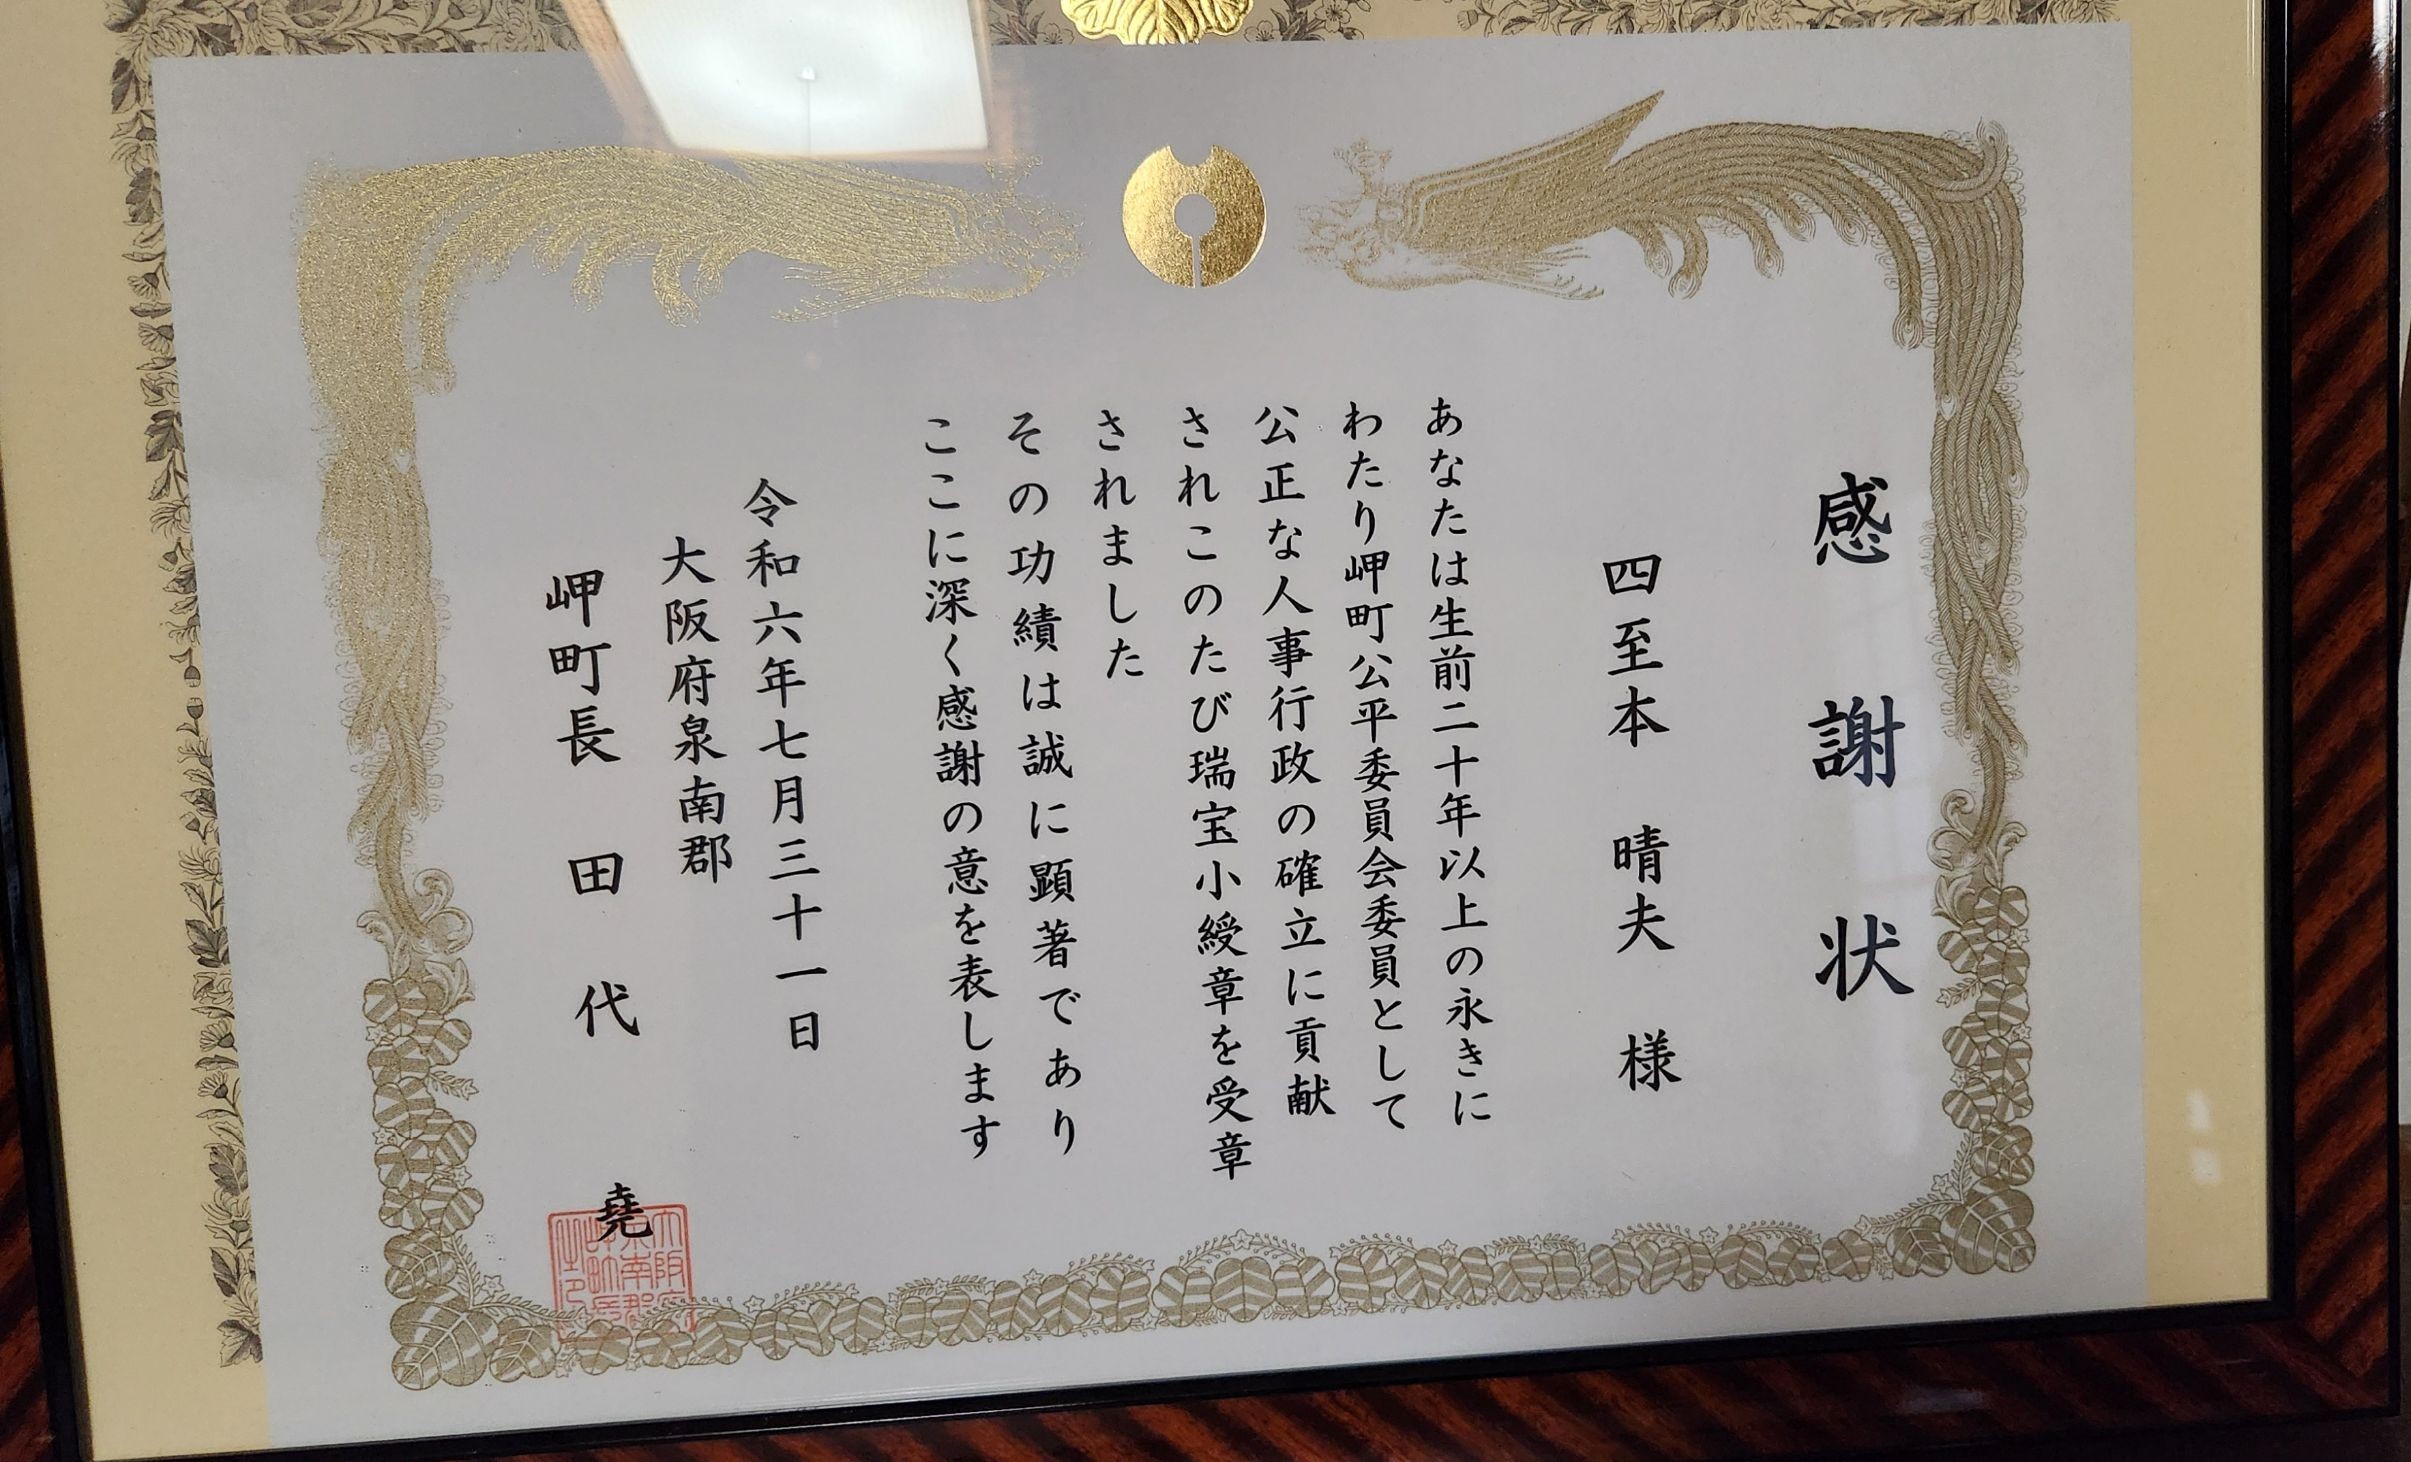 感謝状
四至本 晴夫 様
あなたは生前二十年以上の永きに
わたり岬町公平委員会委員として
公正な人事行政の確立に貢献
されこのたび瑞宝小綬章を受章
されました
その功績は誠に顕著であり
ここに深く感謝の意を表します
令和六年七月三十一日
大阪府泉南郡
岬町長 田代 堯